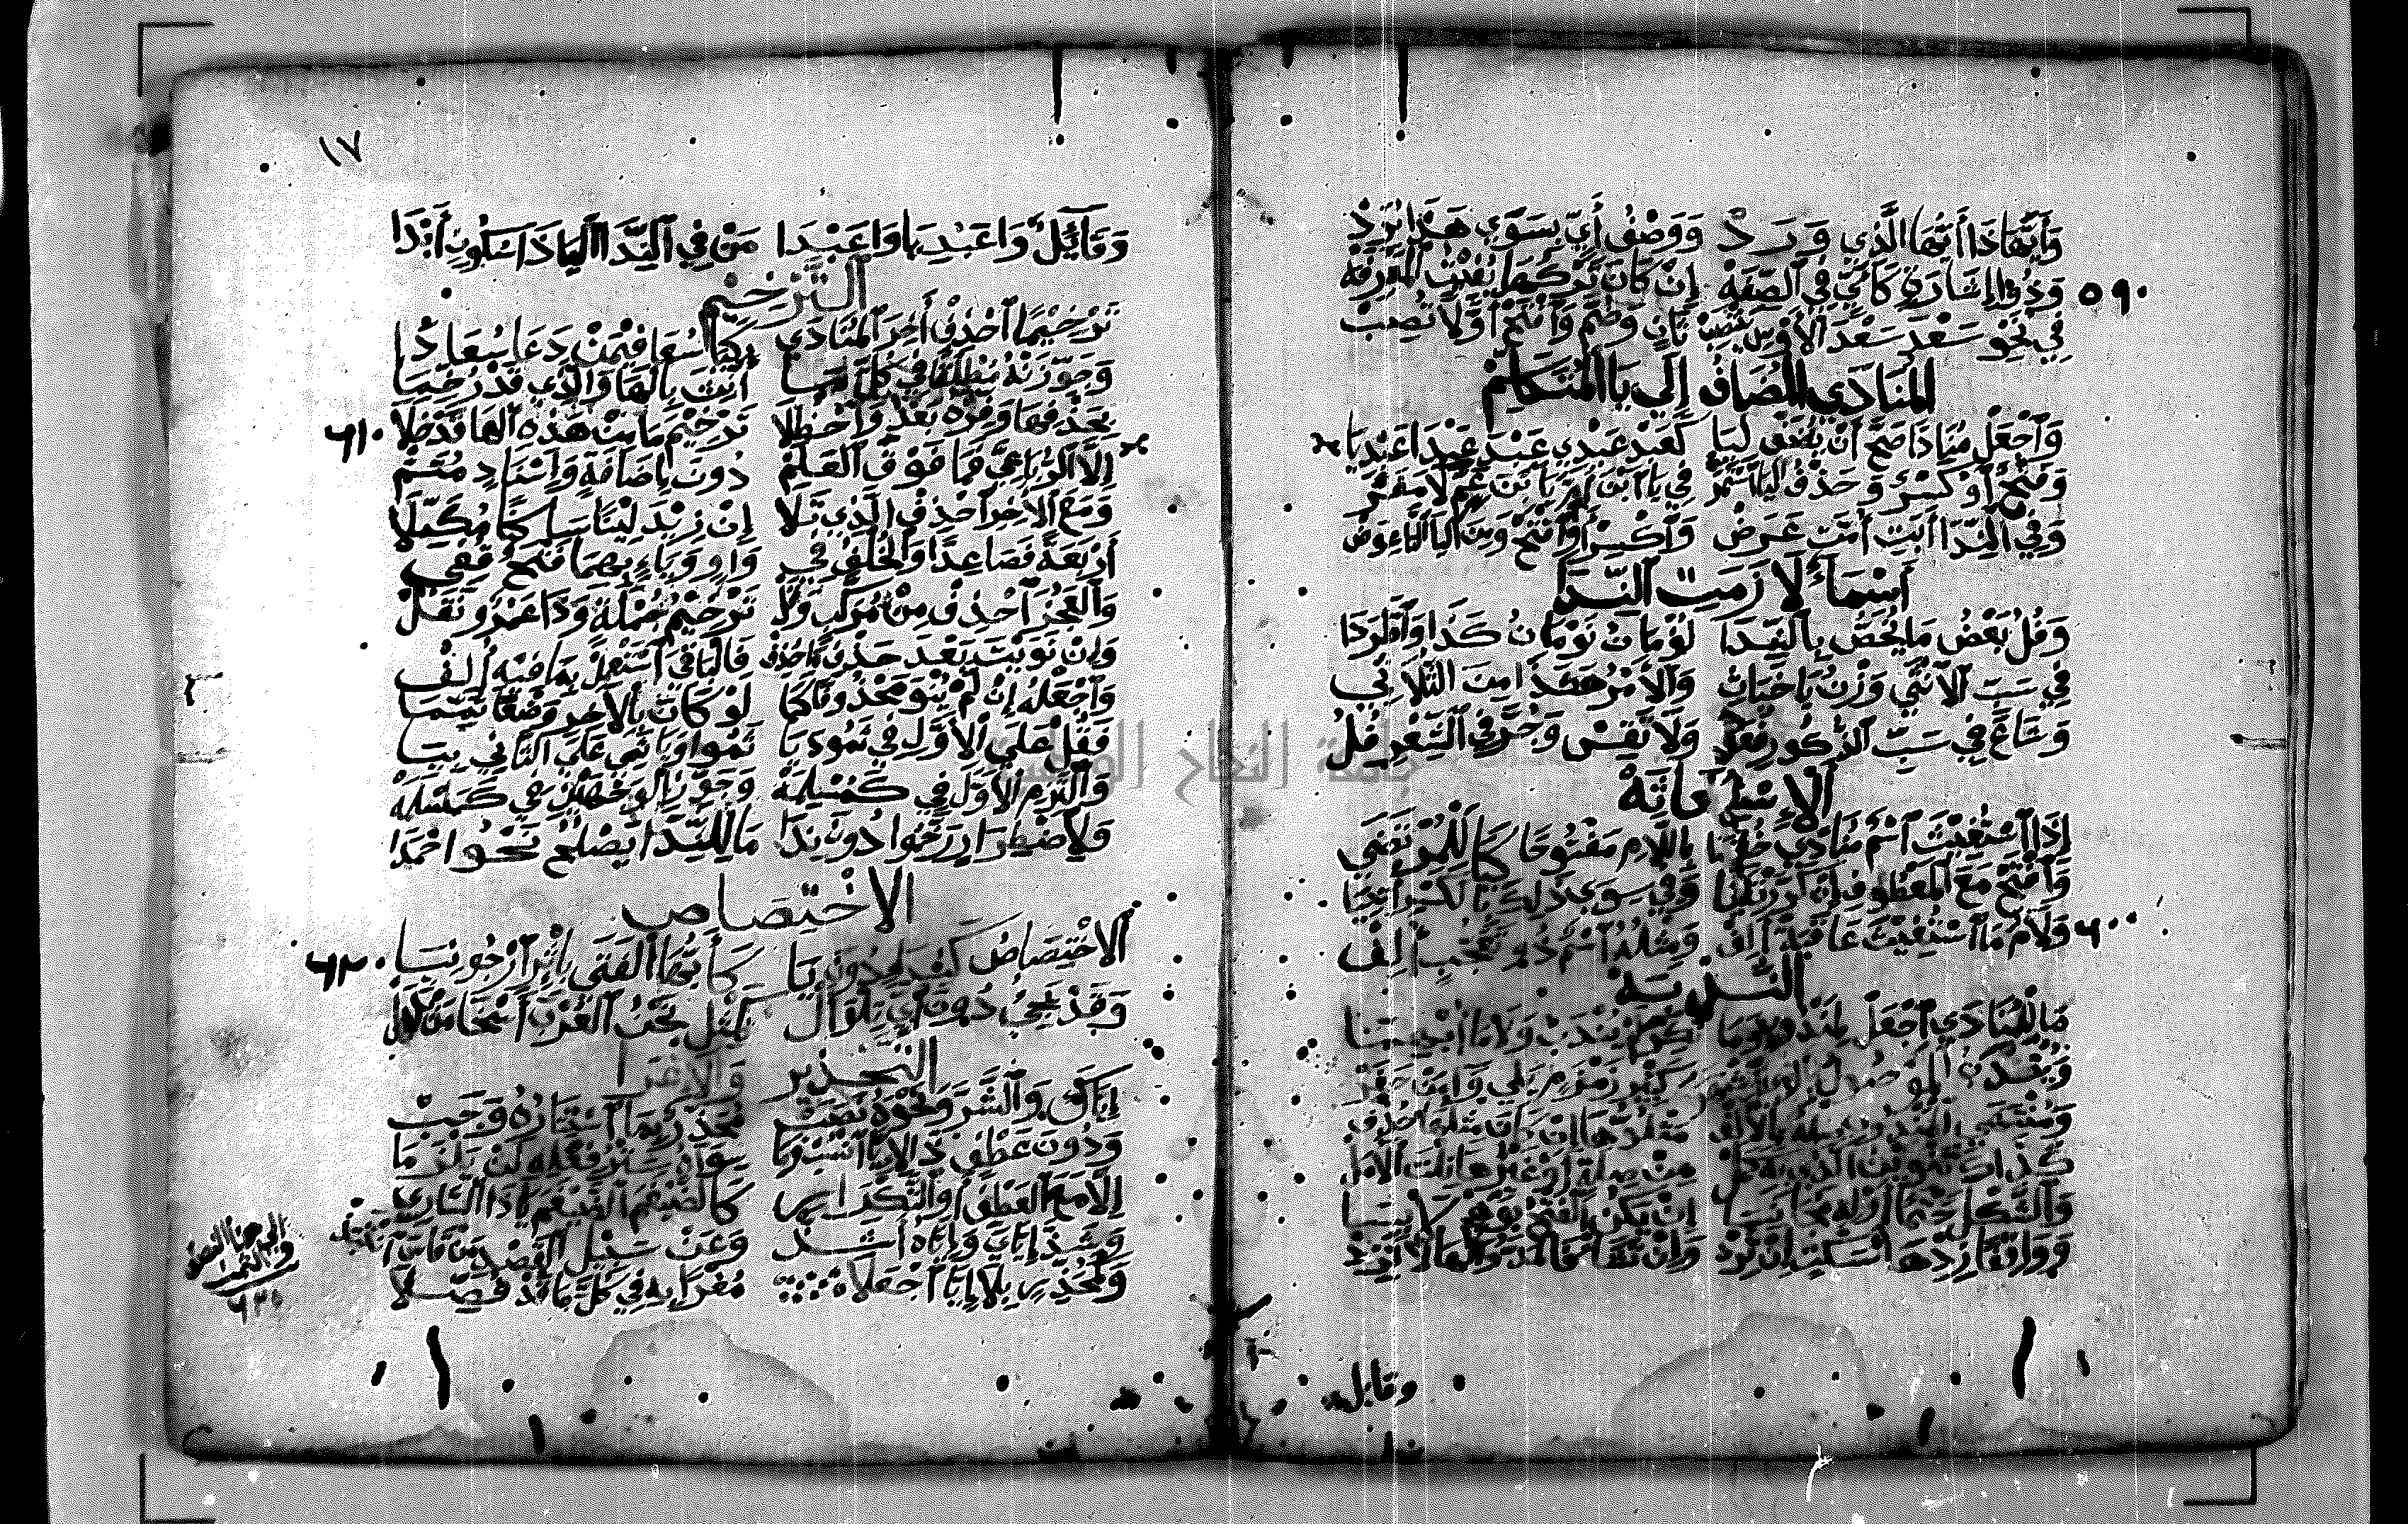 وَأَيُّهَا ذَا أَيُّهَا الَّذِي وَرَدْ وَوَصْفُ أَيٍّ بِسِوَى هَذَا يُرَدّْ
٥٩٠ وَذُو إِشَارَةٍ كَأَيٍّ فِي الصِّفَهْ إِنْ كَانَ تَرْكُهَا يُفِيتُ الْمَعْرِفَهْ
فِي نَحْوِ سَعْدُ سَعْدَ الْأَوْسِ يَنْتَصِبْ ثَانٍ وَضُمَّ وَافْتَحْ أَوَّلًا تُصِبْ
الْمُنَادَى الْمُضَافُ إِلَى يَا الْمُتَكَلِّمْ
وَاجْعَلْ مُنَادًى صَحَّ أَنْ يُضَفْ لِيَا كَعَبْدِ عَبْدِي عَبْدَ عَبْدَا عَبْدِيَا
وَفَتْحٌ أَوْ كَسْرٌ وَحَذْفُ الْيَا اسْتَمَرّْ فِي يَا ابْنَ أُمَّ يَا ابْنَ عَمَّ لَا مَفَرّْ
وَفِي النِّدَا أَبَتِ أُمَّتِ عَرَضْ وَاكْسِرْ أَوِ افْتَحْ وَمِنَ الْيَا التَّا عِوَضْ
أَسْمَاءٌ لَازَمَتِ النِّدَا
وَفُلُ بَعْضُ مَا يُخَصُّ بِالنِّدَا لُؤْمَانُ نَوْمَانُ كَذَا وَاطَّرَدَا
فِي سَبِّ الْأُنْثَى وَزْنُ يَا خَبَاثِ وَالْأَمْرُ هَكَذَا مِنَ الثُّلَاثِي
وَشَاعَ فِي سَبِّ الذُّكُورِ فُعَلُ وَلَا تَقِسْ وَجُرَّ فِي الشِّعْرِ فُلُ
الْإِسْتِغَاثَةْ
إِذَا اسْتُغِيثَ اسْمٌ مُنَادًى خُفِضَا بِاللَّامِ مَفْتُوحًا كَيَا لَلْمُرْتَضَى
وَافْتَحْ مَعَ الْمَعْطُوفِ إِنْ كَرَّرْتَ يَا وَفِي سِوَى ذَلِكَ بِالْكَسْرِ ائْتِيَا
٦٠٠ وَلَامُ مَا اسْتُغِيثَ عَاقَبَتْ أَلِفْ وَمِثْلُهُ اسْمٌ ذُو تَعَجُّبٍ أُلِفْ
النُّدْبَةْ
مَا لِلْمُنَادَى اجْعَلْ لِمَنْدُوبٍ وَمَا نُكِّرَ لَمْ يُنْدَبْ وَلَا مَا أُبْهِمَا
وَيُنْدَبُ الْمَوْصُولُ بِالَّذِي اشْتَهَرْ كَبِئْرِ زَمْزَمٍ يَلِي وَا مَنْ حَفَرْ
وَمُنْتَهَى الْمَنْدُوبِ صِلْهُ بِالْأَلِفْ مَتْلُوُّهَا إِنْ كَانَ مِثْلَهَا حُذِفْ
كَذَاكَ تَنْوِينُ الَّذِي بِهِ كَمَلْ مِنْ صِلَةٍ أَوْ غَيْرِهَا نِلْتَ الْأَمَلْ
وَالشَّكْلَ حَتْمًا أَوْلِهِ مُجَانِسَا إِنْ يَكُنِ الْفَتْحُ بِوَهْمٍ لَابِسَا
وَوَاقِفًا زِدْ هَاءَ سَكْتٍ إِنْ تُرِدْ وَإِنْ تَشَأْ فَالْمَدَّ وَالْهَا لَا تَزِدْ
وقائل
١٧
وَقَائِلٌ وَا عَبْدِيَا وَا عَبْدَا مَنْ فِي النِّدَا الْيَا ذَا سُكُونٍ أَبْدَى
التَّرْخِيمُ
تَرْخِيمًا احْذِفْ آخِرَ الْمُنَادَى كَيَا سُعَا فِيمَنْ دَعَا سُعَادَا
وَجَوِّزَنْهُ مُطْلَقًا فِي كُلِّ مَا أُنِّثَ بِالْهَا وَالَّذِي قَدْ رُخِّمَا
بِحَذْفِهَا وَفِّرْهُ بَعْدُ وَاحْظُلَا تَرْخِيمَ مَا مِنْ هَذِهِ الْهَا قَدْ خَلَا ٦١٠
إِلَّا الرُّبَاعِيَّ فَمَا فَوْقَ الْعَلَمْ دُونَ إِضَافَةٍ وَإِسْنَادٍ مُتَمّْ
وَمَعَ الْآخِرِ احْذِفِ الَّذِي تَلَا إِنْ زِيدَ لِينًا سَاكِنًا مُكَمِّلَا
أَرْبَعَةً فَصَاعِدًا وَالْخُلْفُ فِي وَاوٍ وَيَاءٍ بِهِمَا فَتْحٌ قُفِي
وَالْعَجُزَ احْذِفْ مِنْ مُرَكَّبٍ وَقَلّْ تَرْخِيمُ جُمْلَةٍ وَذَا عَمْرٌو نَقَلْ
وَإِنْ نَوَيْتَ بَعْدَ حَذْفٍ مَا حُذِفْ فَالْبَاقِيَ اسْتَعْمِلْ بِمَا فِيهِ أُلِفْ
وَاجْعَلْهُ إِنْ لَمْ يُنْوَ مَحْذُوفٌ كَمَا لَوْ كَانَ بِالْآخِرِ وَضْعًا تُمِّمَا
فَقُلْ عَلَى الْأَوَّلِ فِي ثَمُودَ يَا ثَمُو وَيَا ثَمِي عَلَى الثَّانِي بِيَا
وَالْتَزِمِ الْأَوَّلَ فِي كَمُسْلِمَهْ وَجَوِّزِ الْوَجْهَيْنِ فِي كَمَسْلَمَهْ
وَلِاضْطِرَارٍ رَخَّمُوا دُونَ نِدَا مَا لِلنِّدَا يَصْلُحُ نَحْوُ أَحْمَدَا
الْاخْتِصَاصُ
الْاخْتِصَاصُ كَنِدَاءٍ دُونَ يَا كَأَيُّهَا الْفَتَى بِإِثْرِ ارْجُونِيَا ٦٢٠
وَقَدْ يَجِيءُ دُونَ أَيٍّ تِلْوَ أَلْ كَمِثْلِ نَحْنُ الْعُرْبَ أَسْخَى مَنْ بَذَلْ
التَّحْذِيرُ وَالْإِغْرَا
إِيَّاكَ وَالشَّرَّ وَنَحْوَهُ نَصَبْ مُحَذِّرٌ بِمَا اسْتِتَارُهُ وَجَبْ
وَدُونَ عَطْفٍ ذَا لِإِيَّا انْسُبْ وَمَا سِوَاهُ سَتْرُ فِعْلِهِ لَنْ يَلْزَمَا
إِلَّا مَعَ الْعَطْفِ أَوِ التَّكْرَارِ كَالضَّيْغَمَ الضَّيْغَمَ يَا ذَا السَّارِي
وَشَذَّ إِيَّايَ وَإِيَّاهُ أَشَذّْ وَعَنْ سَبِيلِ الْقَصْدِ مَنْ قَاسَ انْتَبَذْ
وَكَمُحَذَّرٍ بِلَا إِيَّا اجْعَلَا مُغْرًى بِهِ فِي كُلِّ مَا قَدْ فُصِّلَا
الى هنا النصف